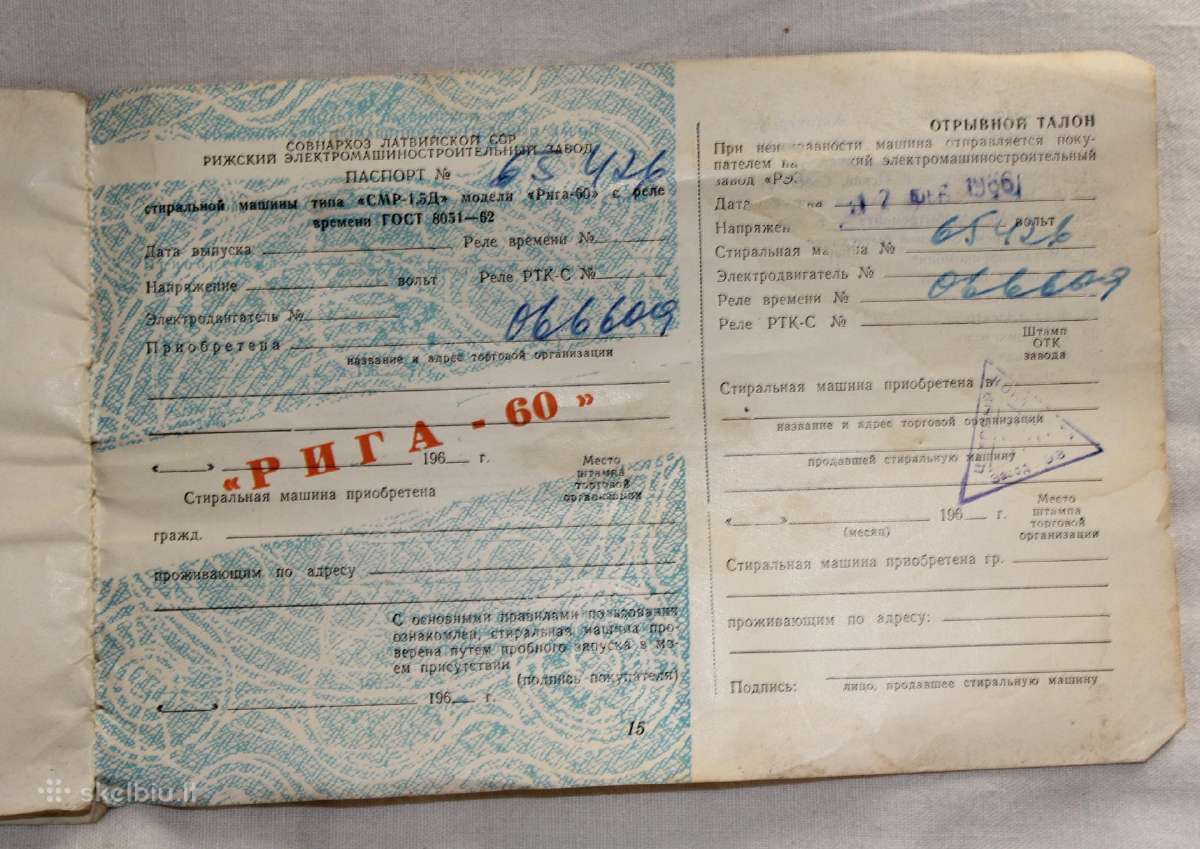 СОВНАРХОЗ ЛАТВИЙСКОЙ ССР
РИЖСКИЙ ЭЛЕКТРОМАШИНОСТРОИТЕЛЬНЫЙ ЗАВОД
ПАСПОРТ № 65426
стиральной машины типа «СМР-1,5Д» модели «Рига-60» с реле
времени ГОСТ 8051—62
Дата выпуска Реле времени №
Напряжение вольт Реле РТК-С №
Электродвигатель № 066609
Приобретена
название и адрес торговой организации
«РИГА - 60»
« » 196 г.
Место
штампа
торговой
организации
Стиральная машина приобретена
гражд.
проживающим по адресу
С основными правилами пользования
ознакомлен, стиральная машина про-
верена путем пробного запуска в мо-
ем присутствии
(подпись покупателя)
« » 196 г.
15
ОТРЫВНОЙ ТАЛОН
При неисправности машина отправляется поку-
пателем на электромашиностроительный
завод «РЭЗ
Дата 1966
Напряжен вольт
Стиральная машина № 65426
Электродвигатель № 066609
Реле времени №
Реле РТК-С №
Штамп
ОТК
завода
Стиральная машина приобретена в
название и адрес торговой организации
продавшей стиральную машину
« » 196 г.
(месяц)
Место
штампа
торговой
организации
Стиральная машина приобретена гр.
проживающим по адресу:
Подпись:
лицо, продавшее стиральную машину
skelbiu.lt